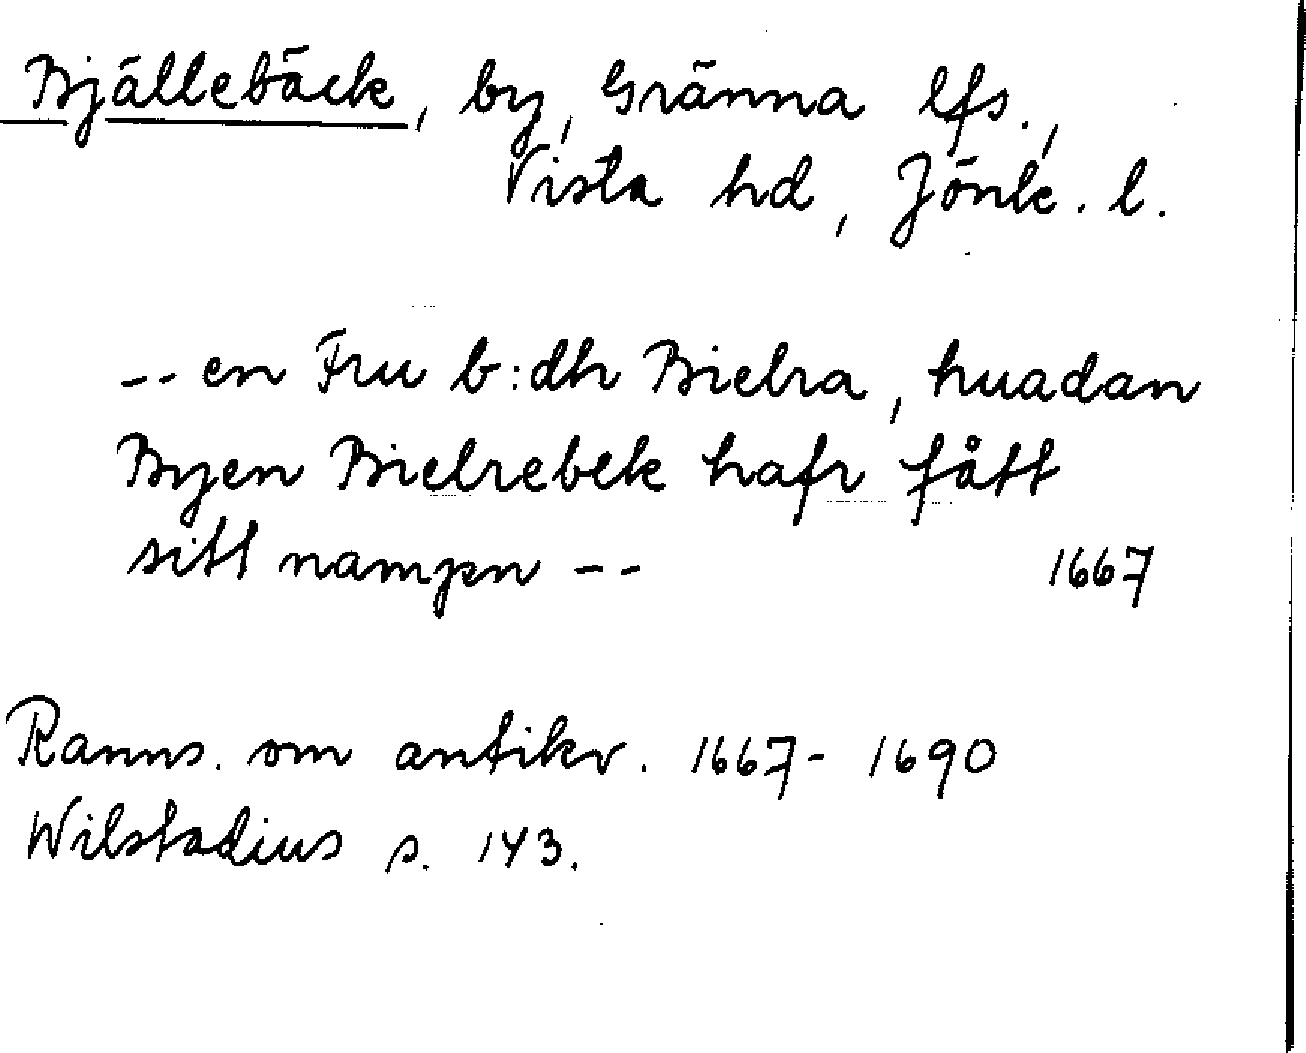 Bjällebäck, by, Gränna lfs.,
Vista hd, Jönk. l.
-- en Fru b:dh Bielra, huadan
Byen Bielrebek hafr fått
sitt nampn --  1667
Ranns. om antikv. 1667-1690
Wilstadius s. 143.